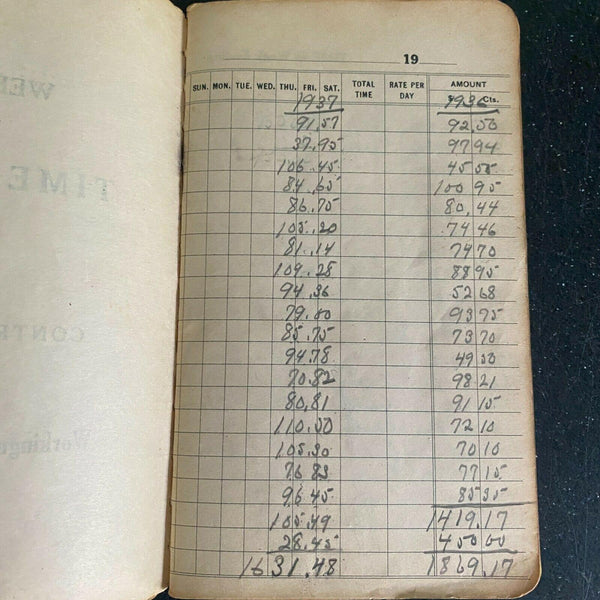 WEE
TIME
CONTR
Workingm
19
SUN. MON. TUE. WED. THU. FRI. SAT. TOTAL TIME RATE PER DAY AMOUNT
1937 1936 Cts.
91.57 92.50
37.95 97 94
106.45 45 55
84.65 100 95
86.75 80,44
105.20 74 46
81.14 74 70
109.28 88 95
94.36 52 68
79.00 93 75
85.75 73 70
94.78 49 50
70.82 98 21
80,81 91 15
110.50 72 10
105.30 70 10
76 83 77 15
96.45 85 35
105.49 1419.17
28.45 450 00
1631.48 1869.17